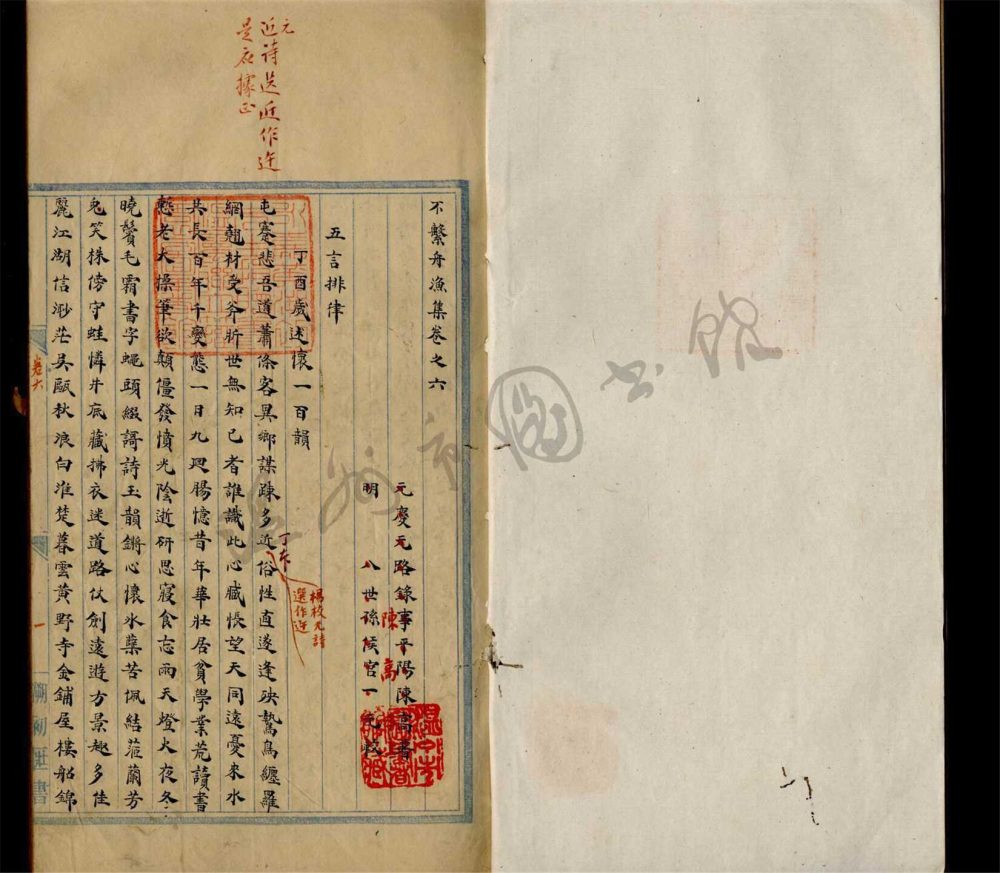 不繫舟漁集卷之六
元慶元路錄事平陽陳高著
明 八世孫侯官一元校
五言排律
丁酉歲述懷一百韻
屯蹇悲吾道蕭條客異鄉謀疎多近俗性直遂逢殃鷙鳥纏羅
網翹材受斧斨世無知己者誰識此心臧悵望天同遠憂來水
共長百年千變態一日九廻腸憶昔年華壯居貧學業荒讀書
慙老大操筆欲顛僵發憤光陰逝研思寢食忘雨天燈火夜冬
曉鬢毛霜書字蠅頭綴謌詩玉韻鏘心懷氷蘗苦佩結茝蘭芳
兔笑株傍守蛙憐井底藏拂衣迷道路仗劍遠遊方景趣多佳
麗江湖信渺茫吳甌秋浪白淮楚暮雲黃野寺金鋪屋樓船錦
元
近詩選近作迕
是應據正
楊校元詩
選作迕
陳高
卷六
一
溫州市圖書館